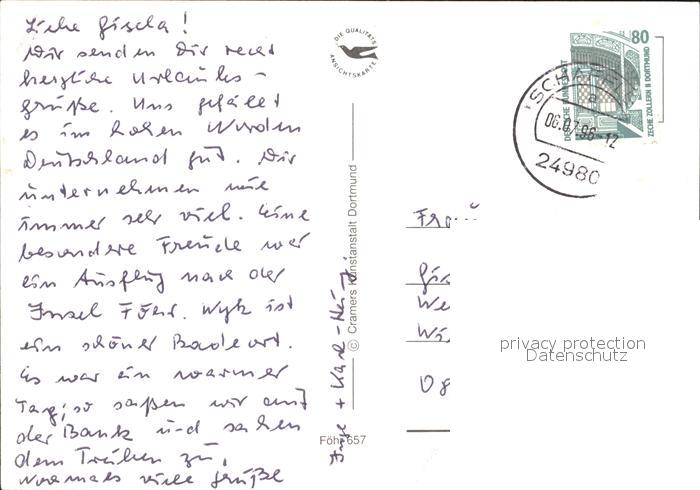 Liebe Gisela!
Wir senden Dir recht
herzliche Urlaubs-
grüße. Uns gefällt
es im hohen Norden
Deutschland gut. Wir
unternehmen wie
immer sehr viel. Eine
besondere Freude war
ein Ausflug nach der
Insel Föhr. Wyk ist
ein schöner Badeort.
Es war ein warmer
Tag; so saßen wir auf
der Bank und sahen
dem Treiben zu.
Nochmals viele Grüße
+ Karl-Heinz
DIE QUALITÄTS
ANSICHTSKARTE
© Cramers Kunstanstalt Dortmund
Föhr 657
80
DEUTSCHE BUNDESPOST
ZECHE ZOLLERN II DORTMUND
06.07.96-12
24980
a
Gis
We
privacy protection
Datenschutz